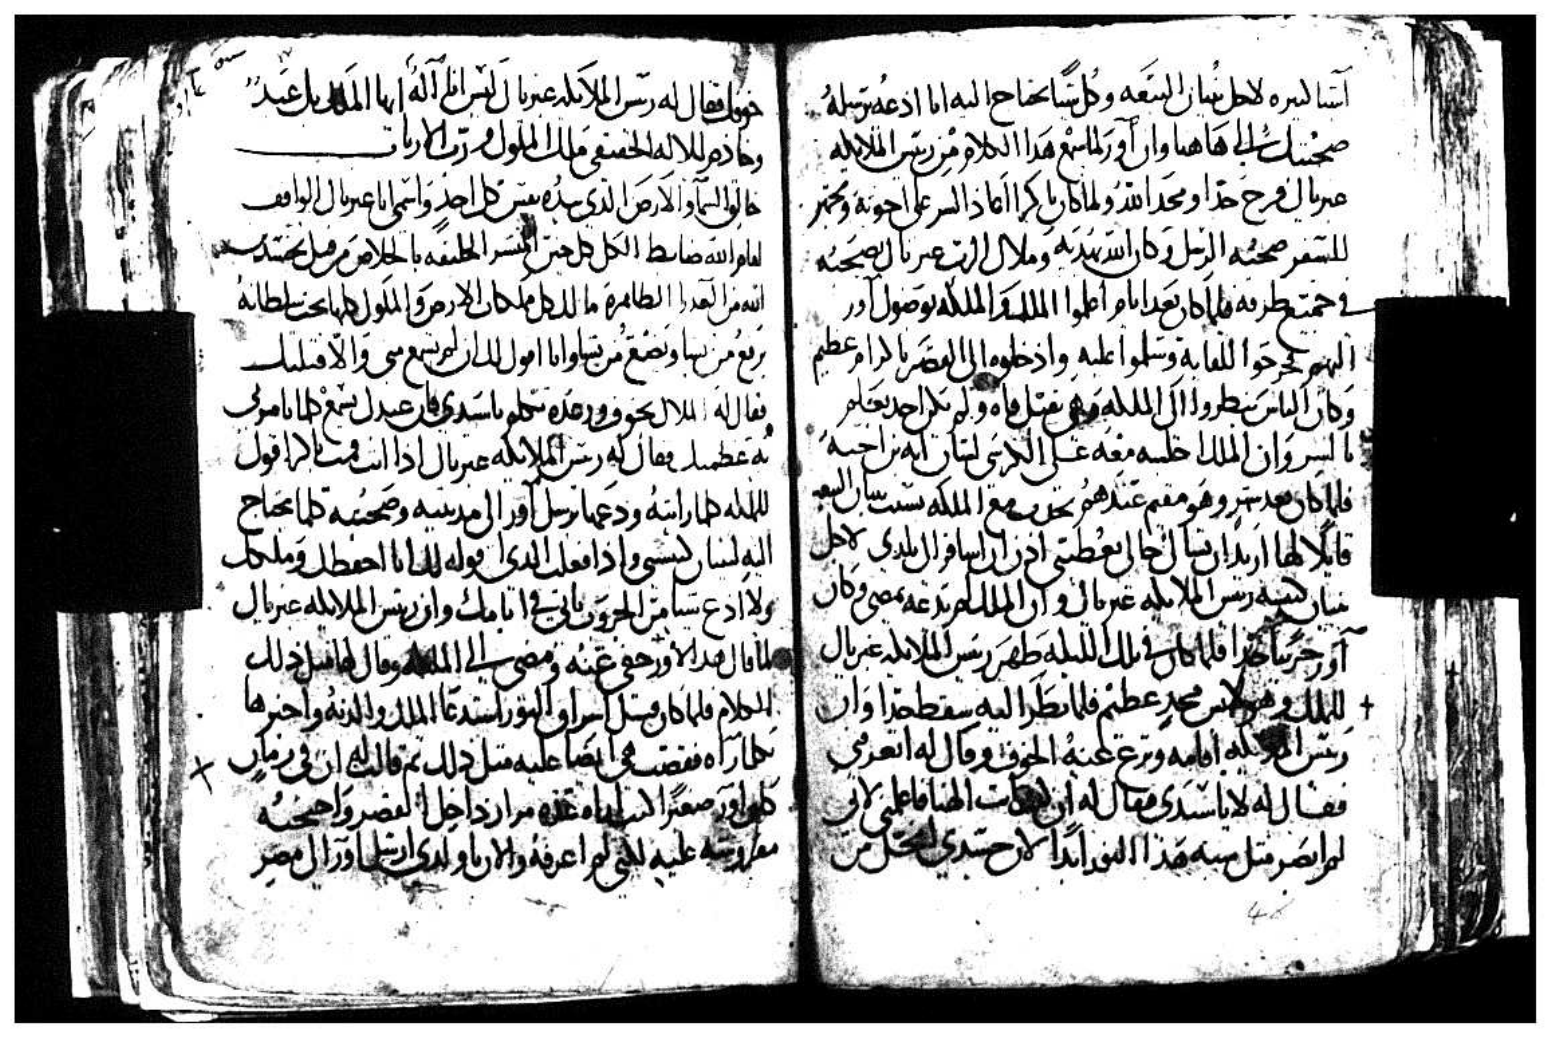 اشيا كثيره لاجل بنيان البيعه وكل شيا تحتاج اليه انا ادعه يرسله
صحبتك الى هاهنا وان اور لما سمع هذا الكلام من ريس الملايكه
غبريال فرح جدا ومجد الله ولما كان باكرا اعاد السر على اخوته وتجهز
للسفر صحبته الرسل وكان الله يهديه وملاك الرب غبريال بصحبته
في جميع طرقه فلما كان بعد ايام اعلموا الملك والملكه بوصول اور
اليهم فخرجوا للقايه وسلموا عليه وادخلوه الى القصر باكرام عظيم
وكان الناس ينظروا الى الملكه وهي تقبل فاه ولم يكن احد يعلم
بالسر وان الملك اجلسه معه على الكرسي
فلما كان بعد شهر وهو مقيم عندهم تحدث مع الملكه بسبب بنيان البيعه
قايلا لها اريد ان تسالي خالي يعطيني اذن ان اسافر الى بلدي لاجل
بنيان كنيسة ريس الملايكه غبريال وان الملك لم يدعه يمضي وكان
اور حزينا جدا فلما كان في تلك الليله ظهر ريس الملايكه غبريال
للملك وهو لابس مجد عظيم فلما نظر اليه سقط جدا وان
ريس الملايكه اقامه ونزع عنه الخوف وقال له اتعرفني
فقال له لا يا سيدي فقال له ان كنت الهنا فاعلمني لاني
لم ابصر مثل هذا النور ابدا لان جسدي انحل من
خوفك فقال له ريس الملايكه غبريال ليس انا اله ايها الملك بل عبد
وخادم للاله الحقيقي ملك الملوك ورب الارباب
خالق السما والارض الذي بيده نفس كل احد واسمي انا غبريال الواقف
امام الله ضابط الكل كل حين المبشر الخليقه بالخلاص من قبل تجسد
الله من العذرا الطاهره مالك كل ممالك الارض والملوك كلها تحت سلطانه
يرفع من يشا ويضع من يشا وانا اقول لك ان لم تسمع مني والا قتلتك
فقال له الملك بخوف ورعده تكلم يا سيدي فان عبدك يسمع كلما تامرني
به عظمتك فقال له ريس الملايكه غبريال اذا انت قمت باكرا قول
للملكه كلما رايته ودعها ترسل اور الى مدينته وصحبته كلما يحتاج
اليه لبنيان كنيستي واذا فعلت الذي اقوله لك انا احفظك ومملكتك
ولا ادع شيا من الحروب ياتي في ايامك وان ريس الملايكه غبريال
لما قال هذا الامر خفي عنه ومضى الى الملكه وقال لها مثل ذلك
الكلام فلما كان قبل اشراق النور استدعا الملك والدته واخبرها
بكلما راه فقصت هي ايضا عليه مثل ذلك ثم قالت له ان في زمان
كان اور صغيرا كنت اراه عدة مرار داخل القصر واحبته
مفروشه عليه لكنني لم اعرفه والان يا ولدي ارسل اور الى مصر